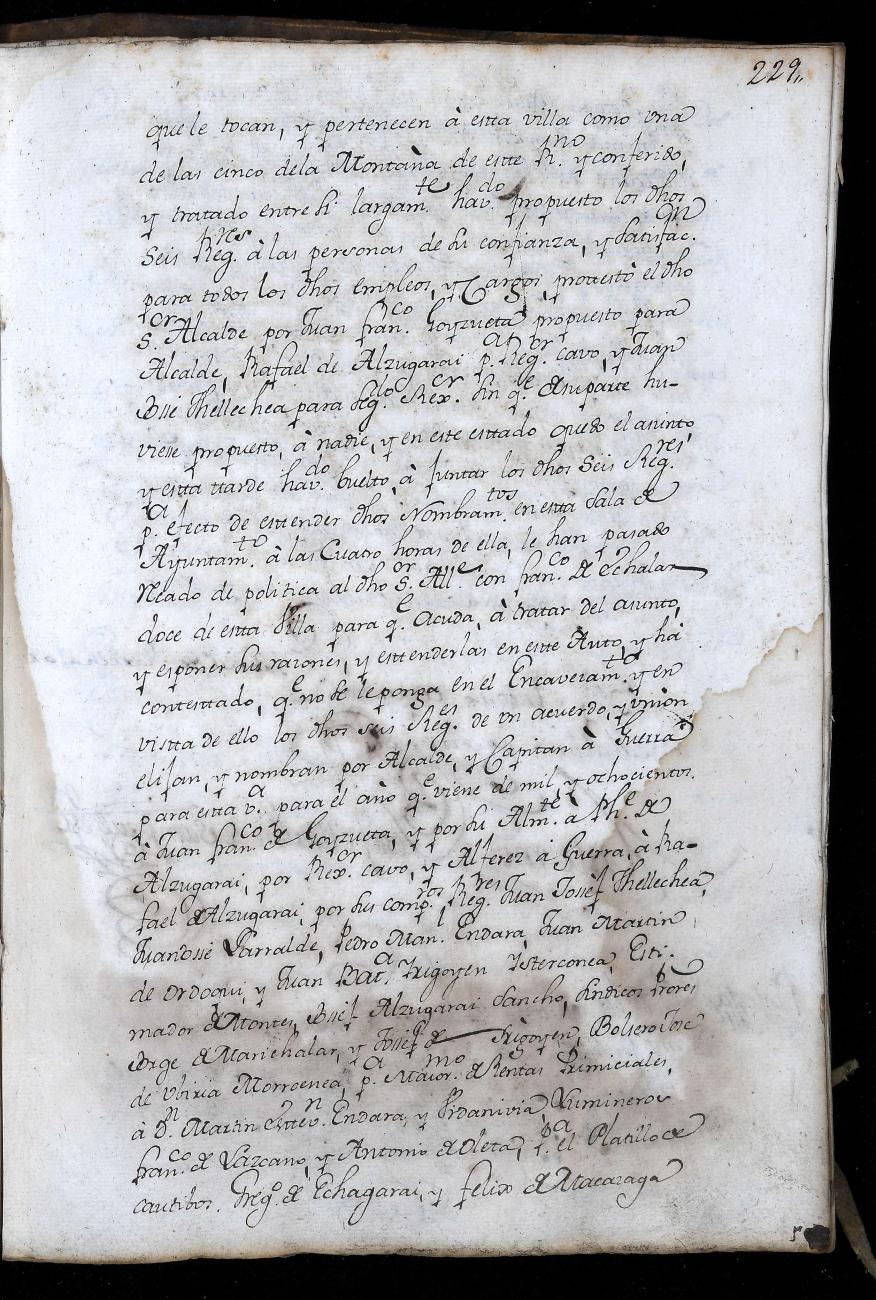 229,,
que le tocan, y pertenecen à estta villa como vna
de las cinco dela Montaña de este R.no y conferido,
y tratado entre si largam.te hav.do propuesto los dhos
Seis Reg.res à las personas de su confianza, y satisfac.on
para todos los dhos empleos, y Cargos protestò el dho
S.or Alcalde por Juan fran.co Goyzueta propuesto para
Alcalde, Rafael de Alzugarai p.a Reg.or cavo, y Juan
Josse Thellechea para Seg.do Rex.or sin q.e de su parte hu-
viesse propuesto, à nadie, y en este esttado quedo el asunto,
y estta ttarde hav.do buelto, à Juntar los dhos Seis Reg.res,
p.a efecto de esttender dhos Nombram.tos en estta Sala de
Ayuntam.to à las Cuatro horas de ella, le han pasado
Recado de politica al dho S.or All.e con fran.co de Echalar
doce de estta Villa para q.e acuda, à tratar del asunto,
y esponer sus razones, y esttenderlas en estte Auto, y hà
contesttado, q.e no se le ponga en el Encaveram.to y en
vistta de ello los dhos seis Reg.es de vn acuerdo, y vnion
elijan, y nombran por Alcalde, y Capitan à Guerra
para estta v.a para el año q.e viene de mil, y ochocientos.
à Juan fran.co de Goyzueta, y por su Alm.te à Ph.e de
Alzugarai, por Rex.or cavo, y Alferez a Guerra, à Ra-
fael de Alzugarai, por sus comp.ros Reg.res Juan Jossef Thellechea,
Juan Josse Larralde, Pedro Man.l Endara, Juan Martin
de Ordoqui, y Juan Bat.a Yrigoyen Ysterconea, Esti-
mador de Montes, Josef Alzugarai Sancho, Sindicos Prores
Jorge de Marichalar, y Josef de Yrigoyen, Bolsero Jose
de Vbiria Morroenea, p.a Maior.mo de Rentas Primiciales,
à D.n Martin Estev.n Endara, y Pidanivia Lumineros
fran.co de Lazcano, y Antonio de Oleta, p.a el Platillo de
cautibos. Greg.o de Echagarai, y felix de Macazaga